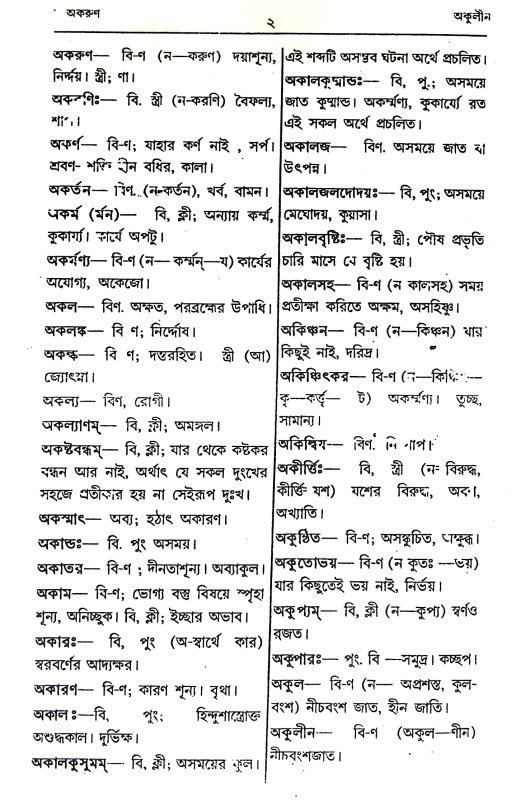 অকরুণ
২
অকুলীন
অকরুণ— বি-ণ (ন—করুণ) দয়াশূন্য,
নির্দ্দয়। স্ত্রী; ণা।
বি. স্ত্রী (ন-করণি) বৈফল্য,
অকর্ণ— বি-ণ; যাহার কর্ণ নাই, সর্প।
শ্রবণ- শক্তি হীন বধির, কালা।
অকর্তন— বিণ. (ন-কর্তন), খর্ব, বামন।
অকর্ম (র্মন)— বি, ক্লী; অন্যায় কর্ম্ম,
কুকার্য্য। কার্যে অপটু।
অকর্ম্মণ্য— বি-ণ (ন— কর্ম্মন্—য) কার্যের
অযোগ্য, অকেজো।
অকল— বিণ. অক্ষত, পরব্রহ্মের উপাধি।
অকলঙ্ক— বি ণ; নির্দ্দোষ।
অকল্ক— বি ণ; দম্ভরহিত। স্ত্রী (আ)
জ্যোৎস্না।
অকল্য— বিণ, রোগী।
অকল্যাণম্— বি, ক্লী; অমঙ্গল।
অকষ্টবন্ধম্— বি, ক্লী; যার থেকে কষ্টকর
বন্ধন আর নাই, অর্থাৎ যে সকল দুঃখের
সহজে প্রতীকার হয় না সেইরূপ দুঃখ।
অকস্মাৎ— অব্য; হঠাৎ অকারণ।
অকান্ডঃ— বি. পুং অসময়।
অকাতর— বি-ণ ; দীনতাশূন্য। অব্যাকুল।
অকাম— বি-ণ; ভোগ্য বস্তু বিষয়ে স্পৃহা
শূন্য, অনিচ্ছুক। বি, ক্লী; ইচ্ছার অভাব।
অকারঃ— বি, পুং (অ-স্বার্থে কার)
স্বরবর্ণের আদ্যক্ষর।
অকারণ— বি-ণ; কারণ শূন্য। বৃথা।
অকালঃ—বি, পুং; হিন্দুশাস্ত্রোক্ত
অশুদ্ধকাল। দুর্ভিক্ষ।
অকালকুসুমম্— বি, ক্লী; অসময়ের ফুল।
এই শব্দটি অসম্ভব ঘটনা অর্থে প্রচলিত।
অকালকুষ্মান্ডঃ— বি, পু; অসময়ে
জাত কুষ্মান্ড। অকর্ম্মণ্য, কুকার্য্যে রত
এই সকল অর্থে প্রচলিত।
অকালজ— বিণ. অসময়ে জাত বা
উৎপন্ন।
অকালজলদোদয়ঃ— বি, পুং; অসময়ে
মেঘোদয়, কুয়াসা।
অকালবৃষ্টিঃ— বি, স্ত্রী; পৌষ প্রভৃতি
চারি মাসে যে বৃষ্টি হয়।
অকালসহ— বি-ণ (ন কালসহ) সময়
প্রতীক্ষা করিতে অক্ষম, অসহিষ্ণু।
অকিঞ্চন— বি-ণ (ন—কিঞ্চন) যার
কিছুই নাই, দরিদ্র।
অকিঞ্চিৎকর— বি-ণ
কৃ—কর্ত্তৃ— ট) অকর্ম্মণ্য। তুচ্ছ,
সামান্য।
অকিল্বিষ— বিণ. নিষ্পাপ।
অকীর্ত্তিঃ— বি, স্ত্রী (ন- বিরুদ্ধ,
কীর্ত্তি- যশ) যশের বিরুদ্ধ,
অখ্যাতি।
অকুন্ঠিত— বি-ণ; অসঙ্কুচিত,
অকুতোভয়— বি-ণ (ন কুতঃ —ভয়)
যার কিছুতেই ভয় নাই, নির্ভয়।
অকুপ্যম্— বি, ক্লী (ন—কুপ্য) স্বর্ণও
রজত।
অকুপারঃ— পুং. বি —সমুদ্র। কচ্ছপ।
অকুল— বি-ণ (ন— অপ্রশস্ত, কুল-
বংশ) নীচবংশ জাত, হীন জাতি।
অকুলীন— বি-ণ (অকুল—ণীন)
নীচবংশজাত।